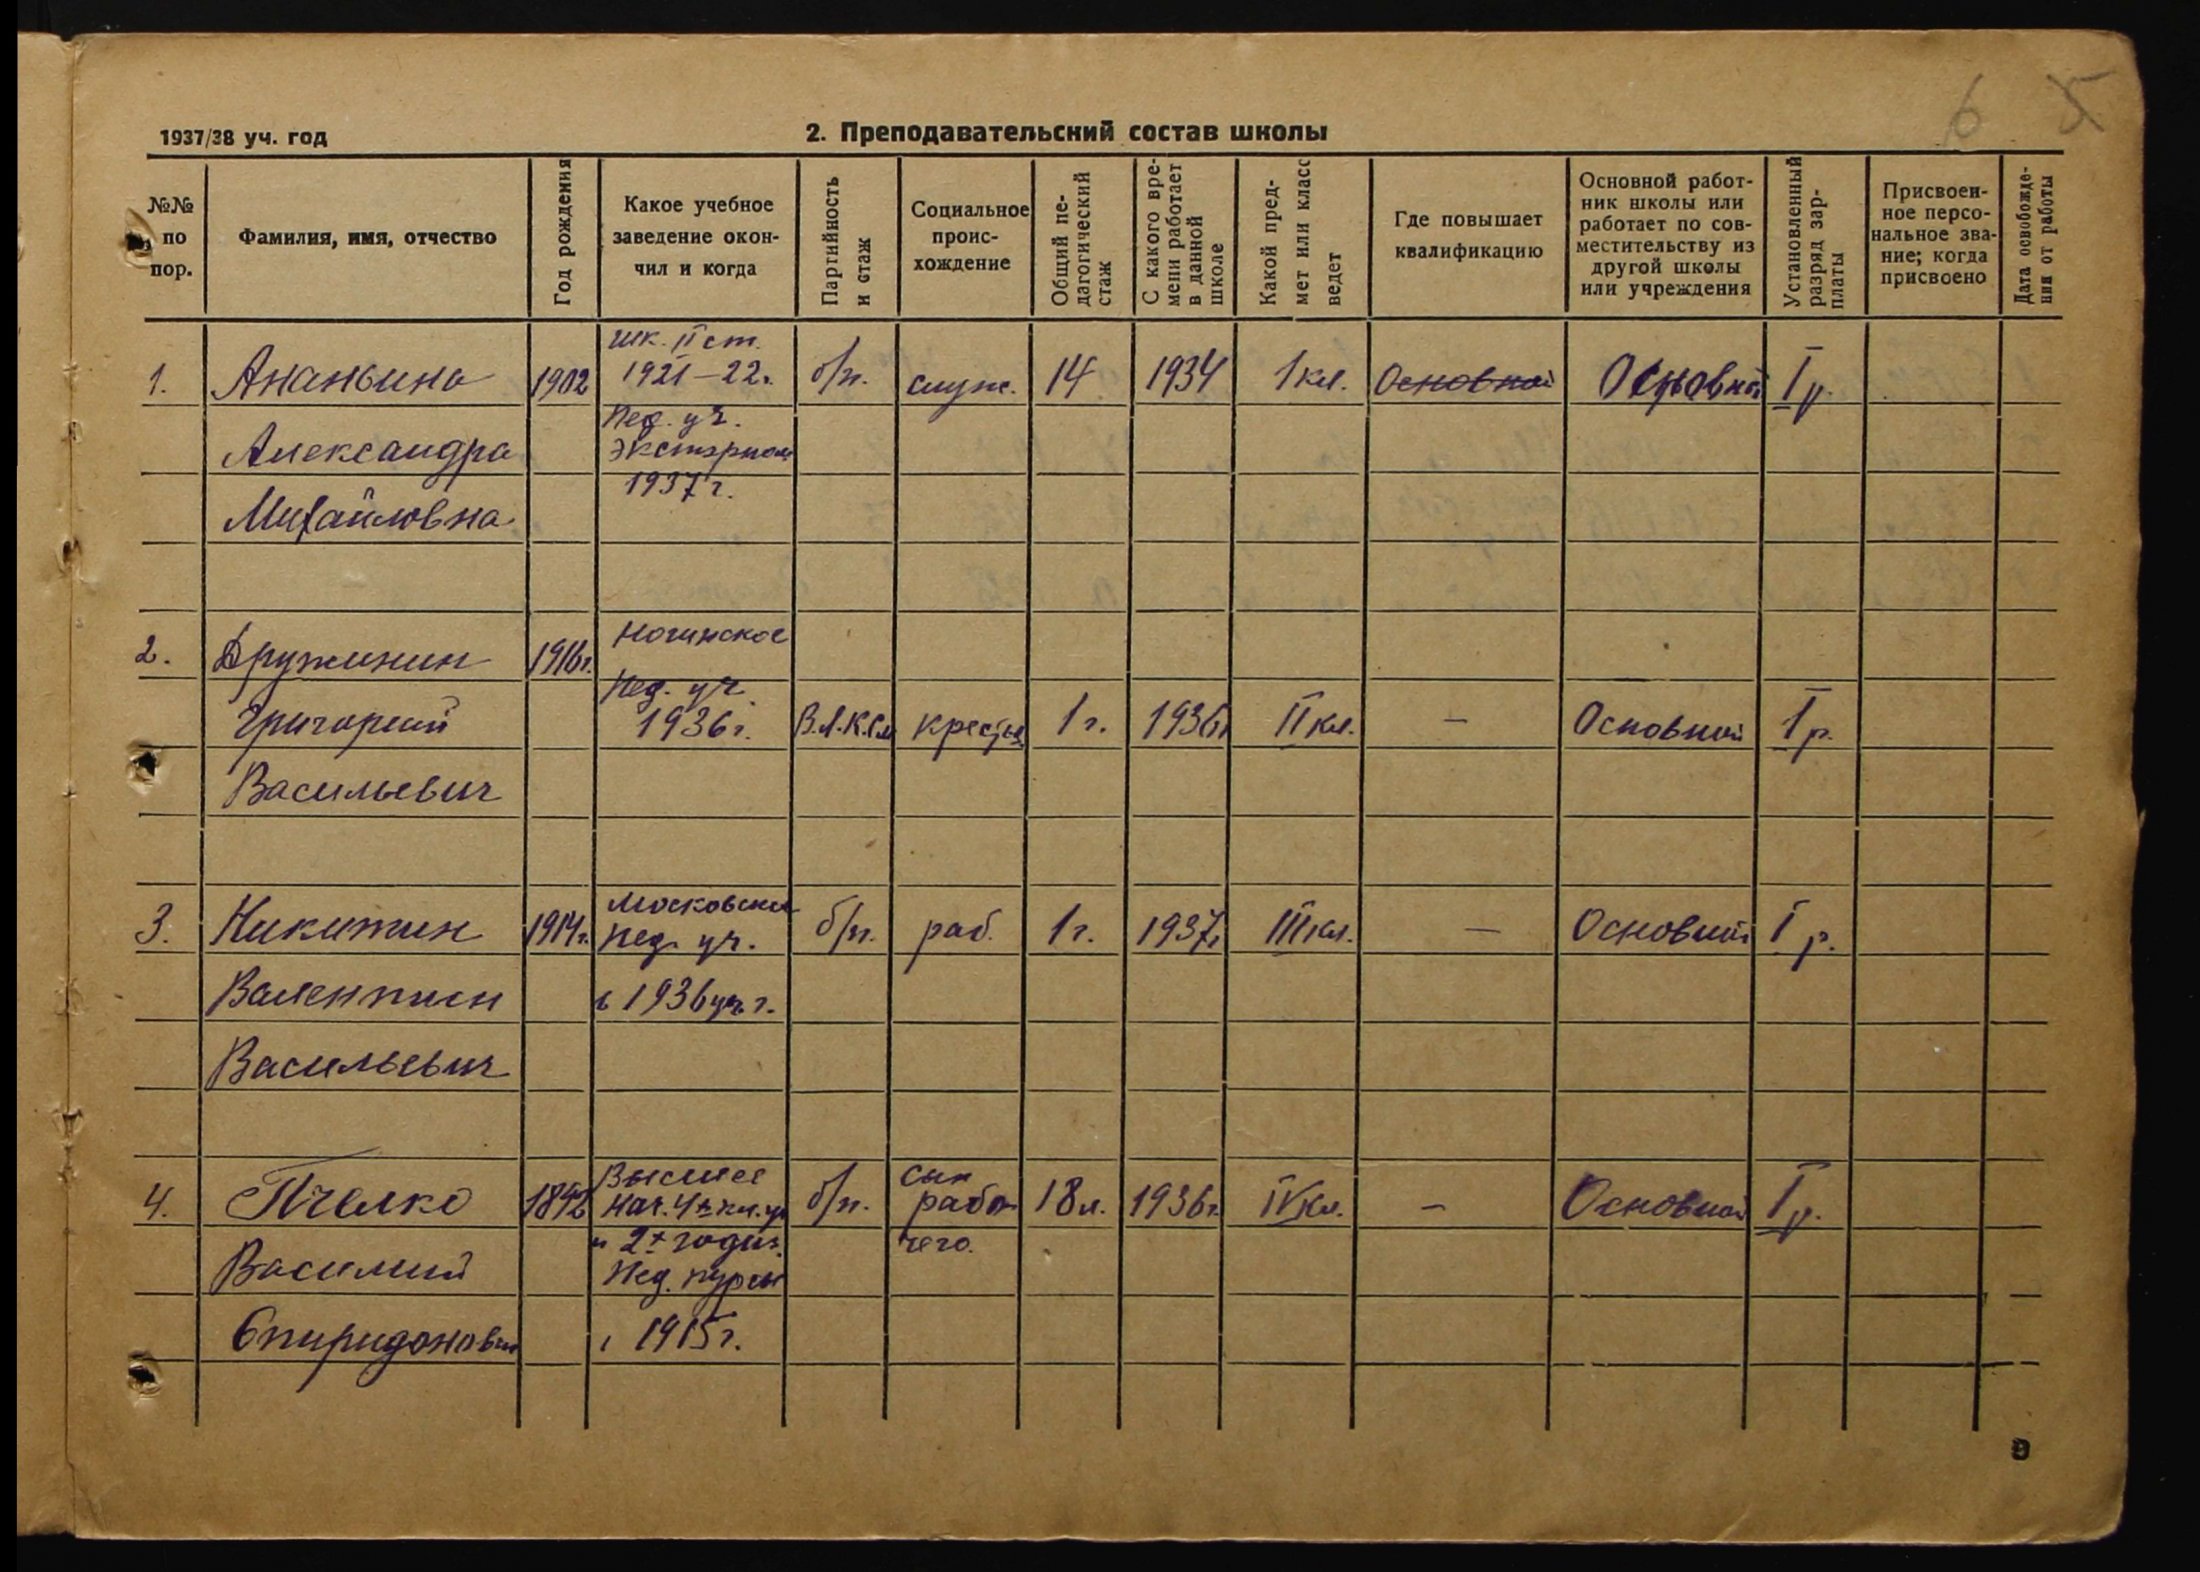 6 5
1937/38 уч. год
2. Преподавательский состав школы
№№ по пор.
Фамилия, имя, отчество
Год рождения
Какое учебное заведение окончил и когда
Партийность и стаж
Социальное происхождение
Общий педагогический стаж
С какого времени работает в данной школе
Какой предмет или класс ведет
Где повышает квалификацию
Основной работник школы или работает по совместительству из другой школы или учреждения
Установленный разряд зарплаты
Присвоенное персональное звание; когда присвоено
Дата освобождения от работы
шк. II ст.
1. Ананьина 1902 1921–22г. б/п. служ. 14 1934 1 кл. Основной Основной I р.
Пед. уч.
Александра экстерном
1937 г.
Михайловна
Ногинское
2. Дружинин 1916г.
Пед. уч.
Григорий 1936г. В.Л.К.См крестья 1 г. 1936г II кл. – Основной I р.
Васильевич
Московски
3. Никитин 1914г. пед. уч. б/п. раб. 1 г. 1937г III кл. – Основной I р.
Валентин в 1936 уч г.
Васильевич
Высшее сын
4. Пчелко 1892 нач. 4х кл. уч б/п. рабо- 18 л. 1936г. IV кл. – Основной I р.
и 2х годич. чего.
Василий Пед. курсы
Спиридонович в 1915 г.
9